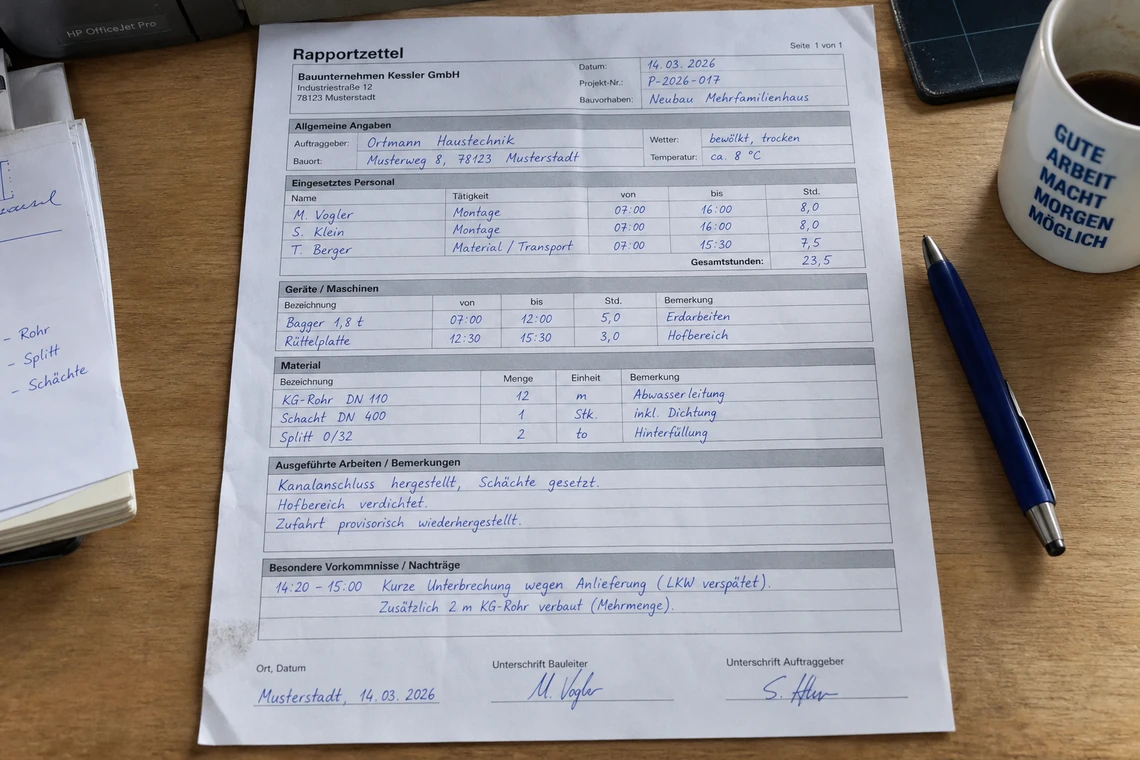 HP OfficeJet Pro
Rapportzettel
Seite 1 von 1
Bauunternehmen Kessler GmbH
Industriestraße 12
78123 Musterstadt
Datum: 14.03.2026
Projekt-Nr.: P-2026-017
Bauvorhaben: Neubau Mehrfamilienhaus
Allgemeine Angaben
Auftraggeber: Ortmann Haustechnik Wetter: bewölkt, trocken
Bauort: Musterweg 8, 78123 Musterstadt Temperatur: ca. 8 °C
Eingesetztes Personal
Name Tätigkeit von bis Std.
M. Vogler Montage 07:00 16:00 8,0
S. Klein Montage 07:00 16:00 8,0
T. Berger Material / Transport 07:00 15:30 7,5
Gesamtstunden: 23,5
Geräte / Maschinen
Bezeichnung von bis Std. Bemerkung
Bagger 1,8 t 07:00 12:00 5,0 Erdarbeiten
Rüttelplatte 12:30 15:30 3,0 Hofbereich
Material
Bezeichnung Menge Einheit Bemerkung
KG-Rohr DN 110 12 m Abwasserleitung
Schacht DN 400 1 Stk. inkl. Dichtung
Splitt 0/32 2 to Hinterfüllung
Ausgeführte Arbeiten / Bemerkungen
Kanalanschluss hergestellt, Schächte gesetzt.
Hofbereich verdichtet.
Zufahrt provisorisch wiederhergestellt.
Besondere Vorkommnisse / Nachträge
14:20 – 15:00 Kurze Unterbrechung wegen Anlieferung (LKW verspätet).
Zusätzlich 2 m KG-Rohr verbaut (Mehrmenge).
Ort, Datum Unterschrift Bauleiter Unterschrift Auftraggeber
Musterstadt, 14.03.2026 M. Vogler S.
– Rohr
– Splitt
– Schächte
GUTE
ARBEIT
MACHT
MORGEN
MÖGLICH